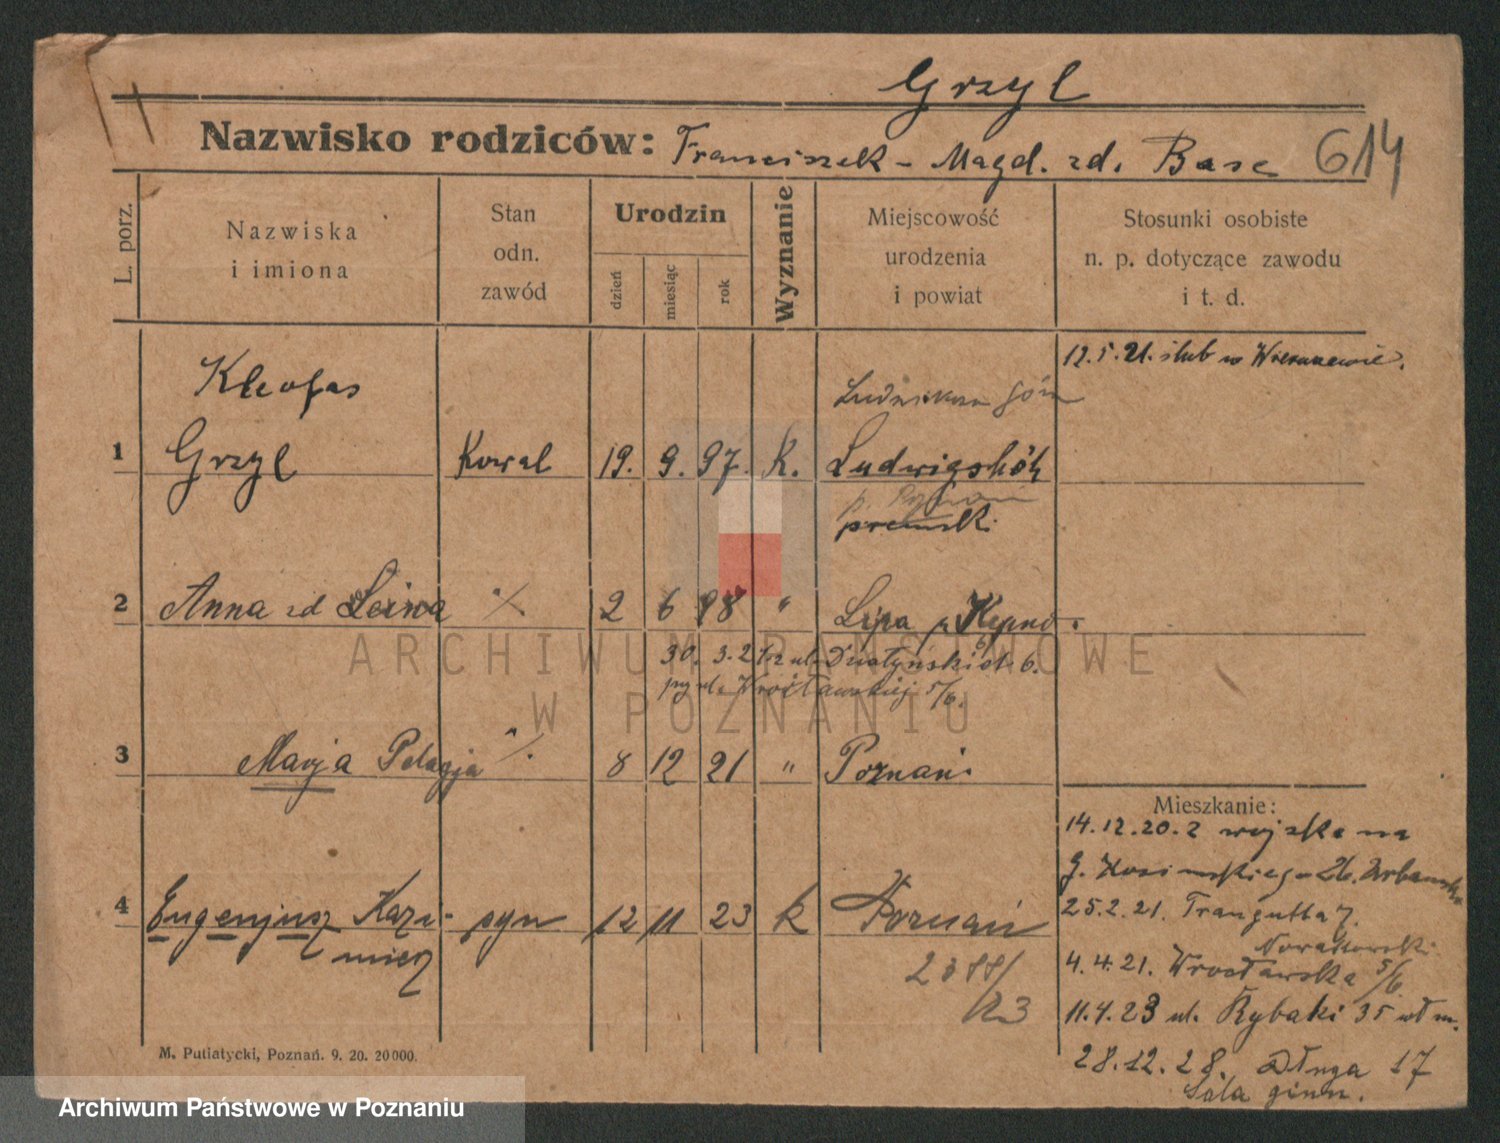 Grzyl
Nazwisko rodziców: Franciszek - Magd. zd. Basc
614
L. porz.
Nazwiska
i imiona
Stan
odn.
zawód
Urodzin
dzień
miesiąc
rok
Wyznanie
Miejscowość
urodzenia
i powiat
Stosunki osobiste
n. p. dotyczące zawodu
i t. d.
12.5.21. ślub w
Kleofas
Ludwikowa góra
1 Grzyl Kowal 19. 9. 97. K. Ludwigshöh
2 Anna zd 2 6 98 " Lipa p. Kępno
30. 3. 21 z ul. Działyńskich 6.
ul. Wrocławskiej 5/6.
3 Marja Pelagja ٪ 8 12 21 " Poznań
Mieszkanie:
14.12.20. z wojska na
25.2.21. Traugutta 7.
4 Eugenjusz Kazi- syn 12 11 23 k Poznań
mierz
Nowakowski
4.4.21. Wrocławska 5/6
23
11.4.23 ul. Rybaki 35
28.12.28. Długa 17
Sala gimn.
M. Putiatycki, Poznań. 9. 20. 20000.
ARCHIWUM PAŃSTWOWE
W POZNANIU
Archiwum Państwowe w Poznaniu